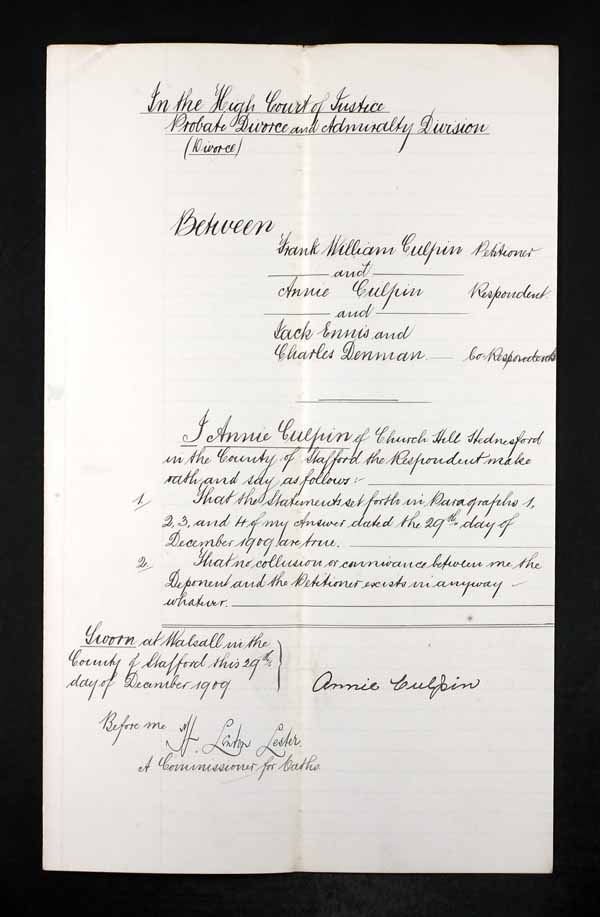 In the High Court of Justice
Probate Divorce and Admiralty Division
(Divorce)
Between
Frank William Culpin Petitioner
and
Annie Culpin Respondent
and
Jack Ennis and
Charles Denman Co-Respondents
I Annie Culpin of Church Hill Hednesford
in the County of Stafford the Respondent make
oath and say as follows:-
1. That the Statements set forth in Paragraphs 1,
2, 3, and 4 of my Answer dated the 29th day of
December 1909 are true.
2. That no collusion or connivance between me the
Deponent and the Petitioner exists in anyway
whatever.
Sworn at Walsall in the
County of Stafford this 29th
day of December 1909
Annie Culpin
Before me
Lester
A Commissioner for Oaths